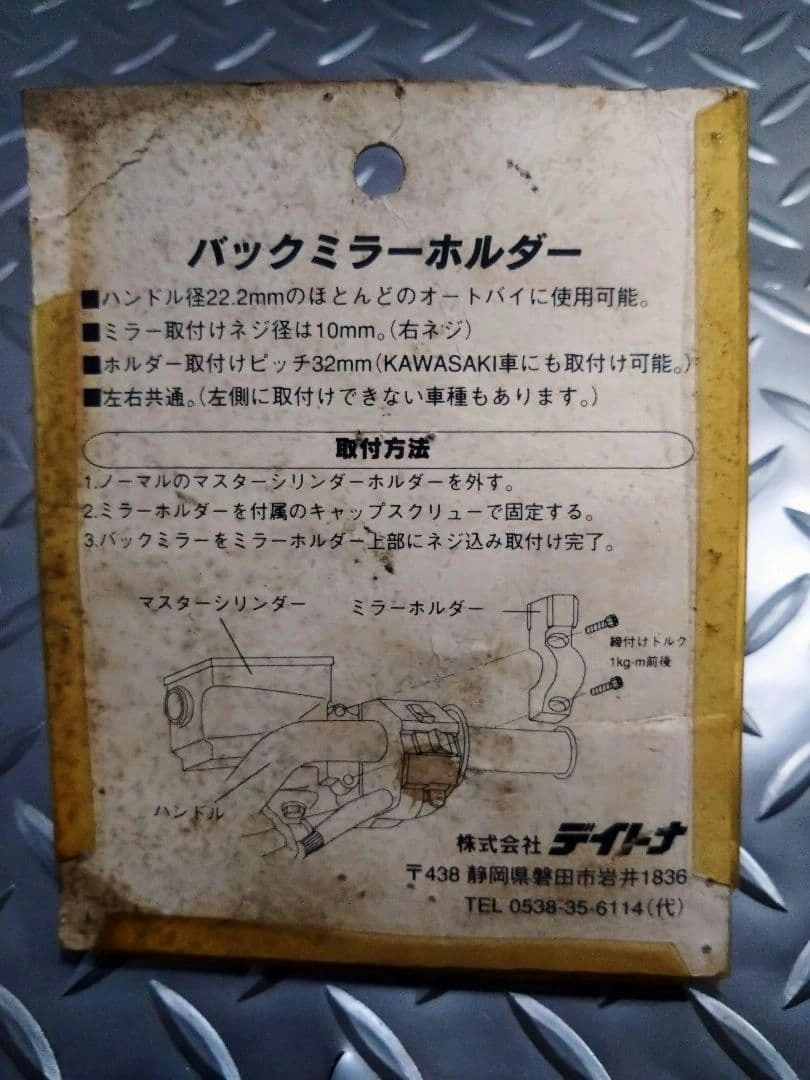 バックミラーホルダー
■ハンドル径22.2mmのほとんどのオートバイに使用可能。
■ミラー取付けネジ径は10mm。(右ネジ)
■ホルダー取付けピッチ32mm(KAWASAKI車にも取付け可能。)
■左右共通。(左側に取付けできない車種もあります。)
取付方法
1.ノーマルのマスターシリンダーホルダーを外す。
2.ミラーホルダーを付属のキャップスクリューで固定する。
3.バックミラーをミラーホルダー上部にネジ込み取付け完了。
マスターシリンダー
ミラーホルダー
締付けトルク
1kg-m前後
ハンドル
株式会社 デイトナ
〒438 静岡県磐田市岩井1836
TEL 0538-35-6114(代)